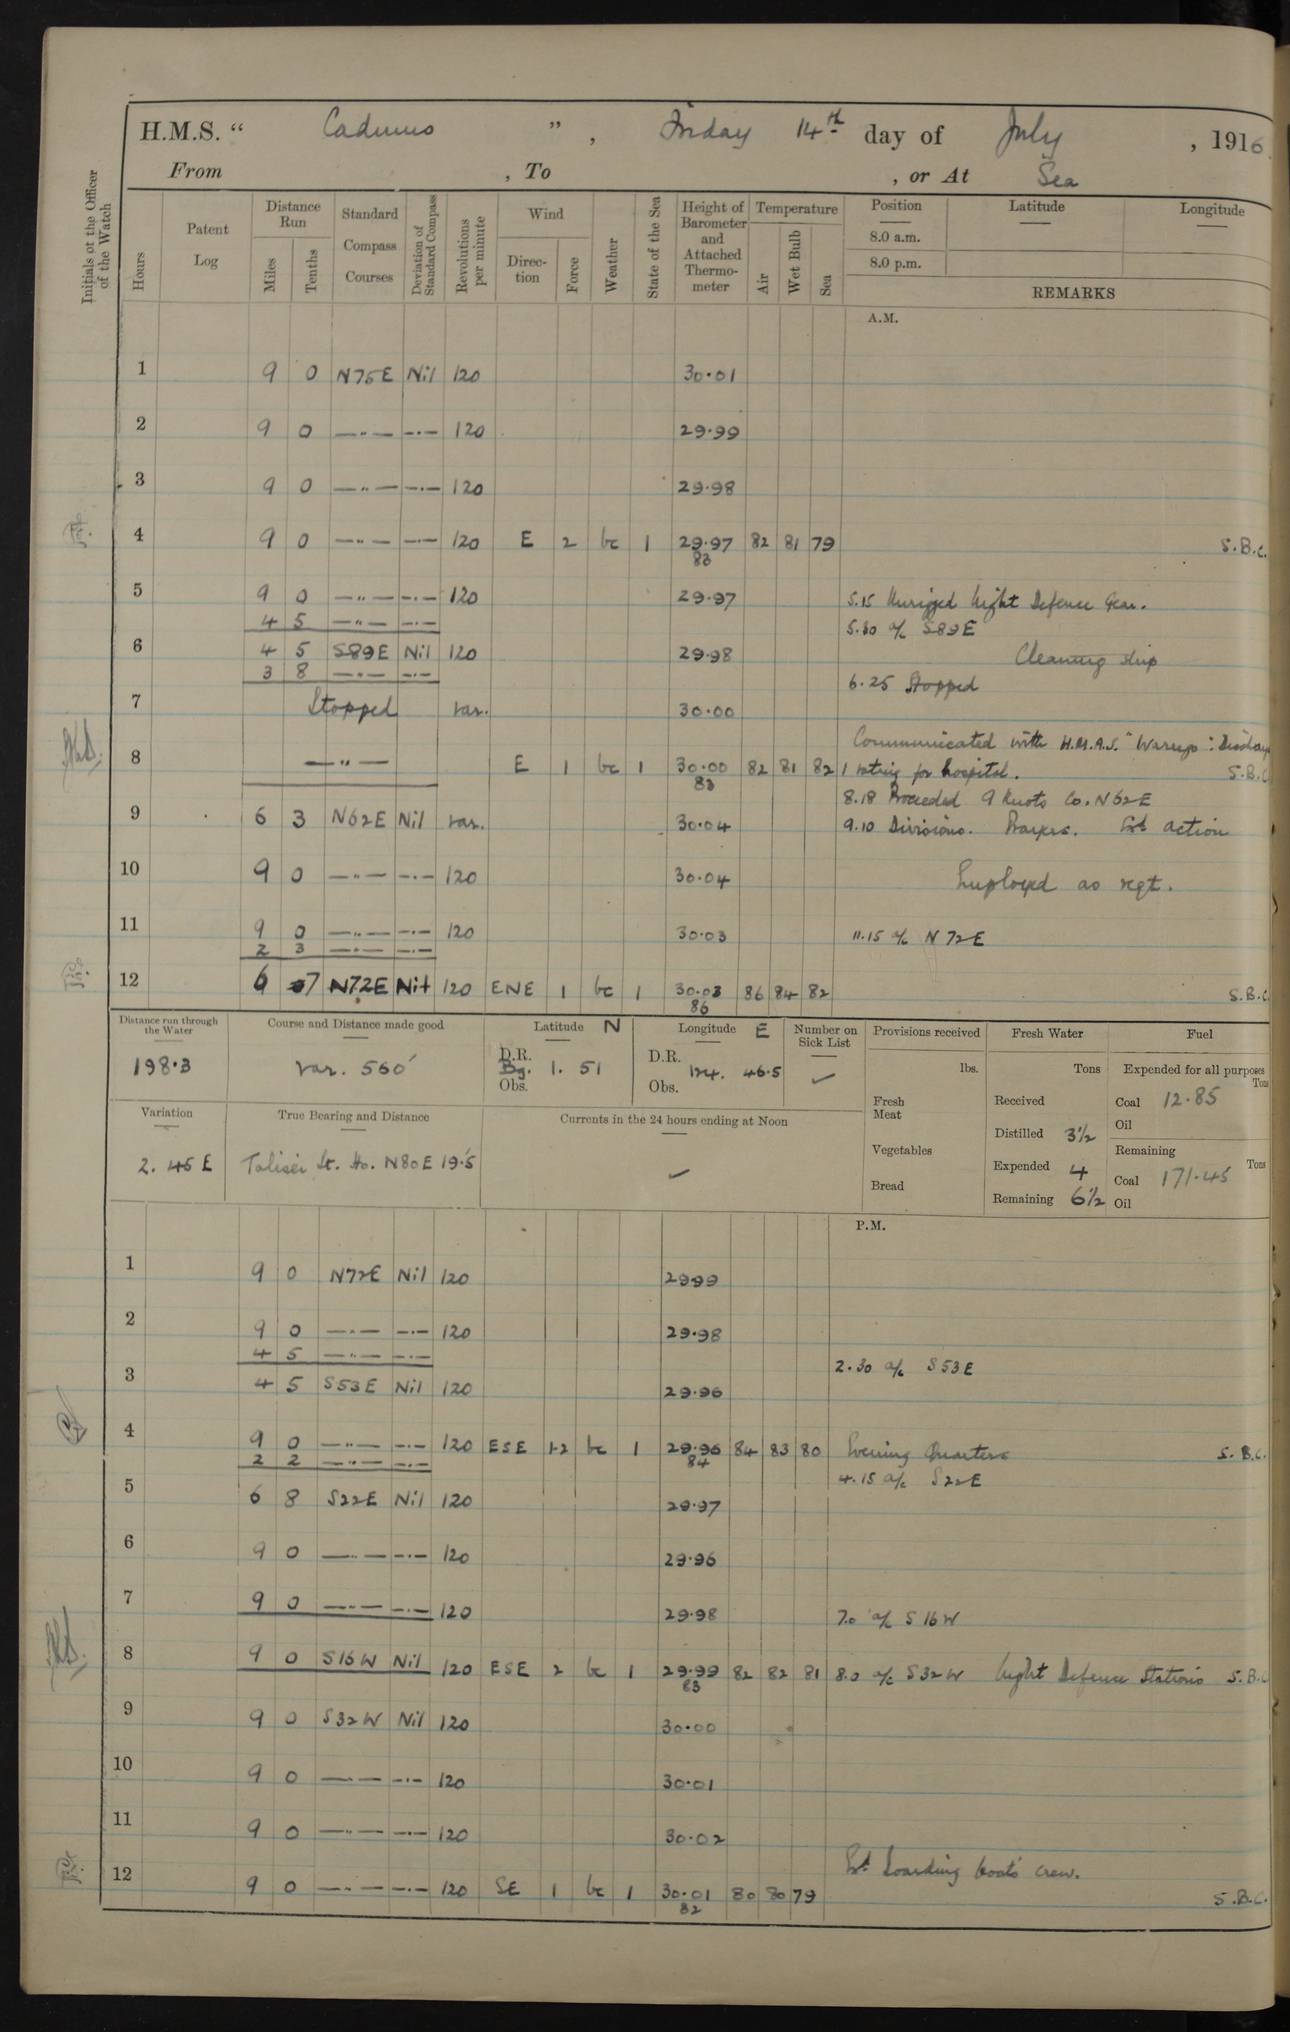 H.M.S. " Cadmus ", Friday 14th day of July, 1916
From , To , or At Sea
Initials of the Officer of the Watch
Hours Patent Log Distance Run Miles Tenths Standard Compass Courses Deviation of Standard Compass Revolutions per minute Wind Direction Force Weather State of the Sea Height of Barometer and Attached Thermometer Temperature Air Wet Bulb Sea Position Latitude Longitude
8.0 a.m.
8.0 p.m.
REMARKS
A.M.
1 9 0 N75E Nil 120 30.01
2 9 0 —"— —"— 120 29.99
3 9 0 —"— —"— 120 29.98
4 9 0 —"— —"— 120 E 2 bc 1 29.97 82 81 79 S.B.C.
83
5 9 0 —"— —"— 120 29.97 5.15 Unrigged Night Defence Gear.
4 5 —"— —"— 5.30 a/c S89E
6 4 5 S89E Nil 120 29.98 Cleaning ship
3 8 —"— —"— 6.25 Stopped
7 Stopped var. 30.00
Communicated with H.M.A.S. "Warrego":
8 —"— E 1 bc 1 30.00 82 81 82 1 rating for hospital. S.B.C.
83
8.18 Proceeded 9 knots Co. N62E
9 6 3 N62E Nil var. 30.04 9.10 Divisions. Prayers. Exd action
10 9 0 —"— —"— 120 30.04 Employed as reqt.
11 9 0 —"— —"— 120 30.03 11.15 a/c N72E
2 3 —"— —"—
12 6 7 N72E Nil 120 ENE 1 bc 1 30.03 86 84 82 S.B.C.
86
Distance run through the Water Course and Distance made good Latitude N Longitude E Number on Sick List Provisions received Fresh Water Fuel
198.3 var. 560' D.R. Bg. Obs. 1. 51 D.R. Obs. 124. 46.5 ✓ lbs. Tons Expended for all purposes Tons
Fresh Meat Received Coal 12.85
Oil
Variation True Bearing and Distance Currents in the 24 hours ending at Noon
Distilled 3½ Remaining
Vegetables
2. 45 E Talisei Lt. Ho. N80E 19.5' ✓ Expended 4 Coal 171.45 Tons
Bread Remaining 6½ Oil
P.M.
1 9 0 N72E Nil 120 29.99
2 9 0 —"— —"— 120 29.98
4 5 —"— —"— 2.30 a/c S53E
3 4 5 S53E Nil 120 29.96
4 9 0 —"— —"— 120 ESE 1-2 bc 1 29.96 84 83 80 Evening Quarters S.B.C.
84
2 2 —"— —"— 4.15 a/c S22E
5 6 8 S22E Nil 120 29.97
6 9 0 —"— —"— 120 29.96
7 9 0 —"— —"— 120 29.98 7.0 a/c S16W
8 9 0 S16W Nil 120 ESE 2 bc 1 29.99 82 82 81 8.0 a/c S32W Night Defence Stations S.B.C.
83
9 9 0 S32W Nil 120 30.00
10 9 0 —"— —"— 120 30.01
11 9 0 —"— —"— 120 30.02
Exd boarding boats crew.
12 9 0 —"— —"— 120 SE 1 bc 1 30.01 80 80 79 S.B.C.
82